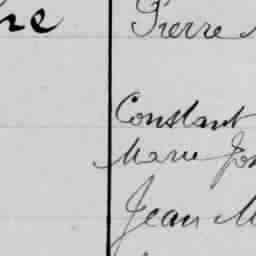 Pierre
Constant
Marie
Jean M